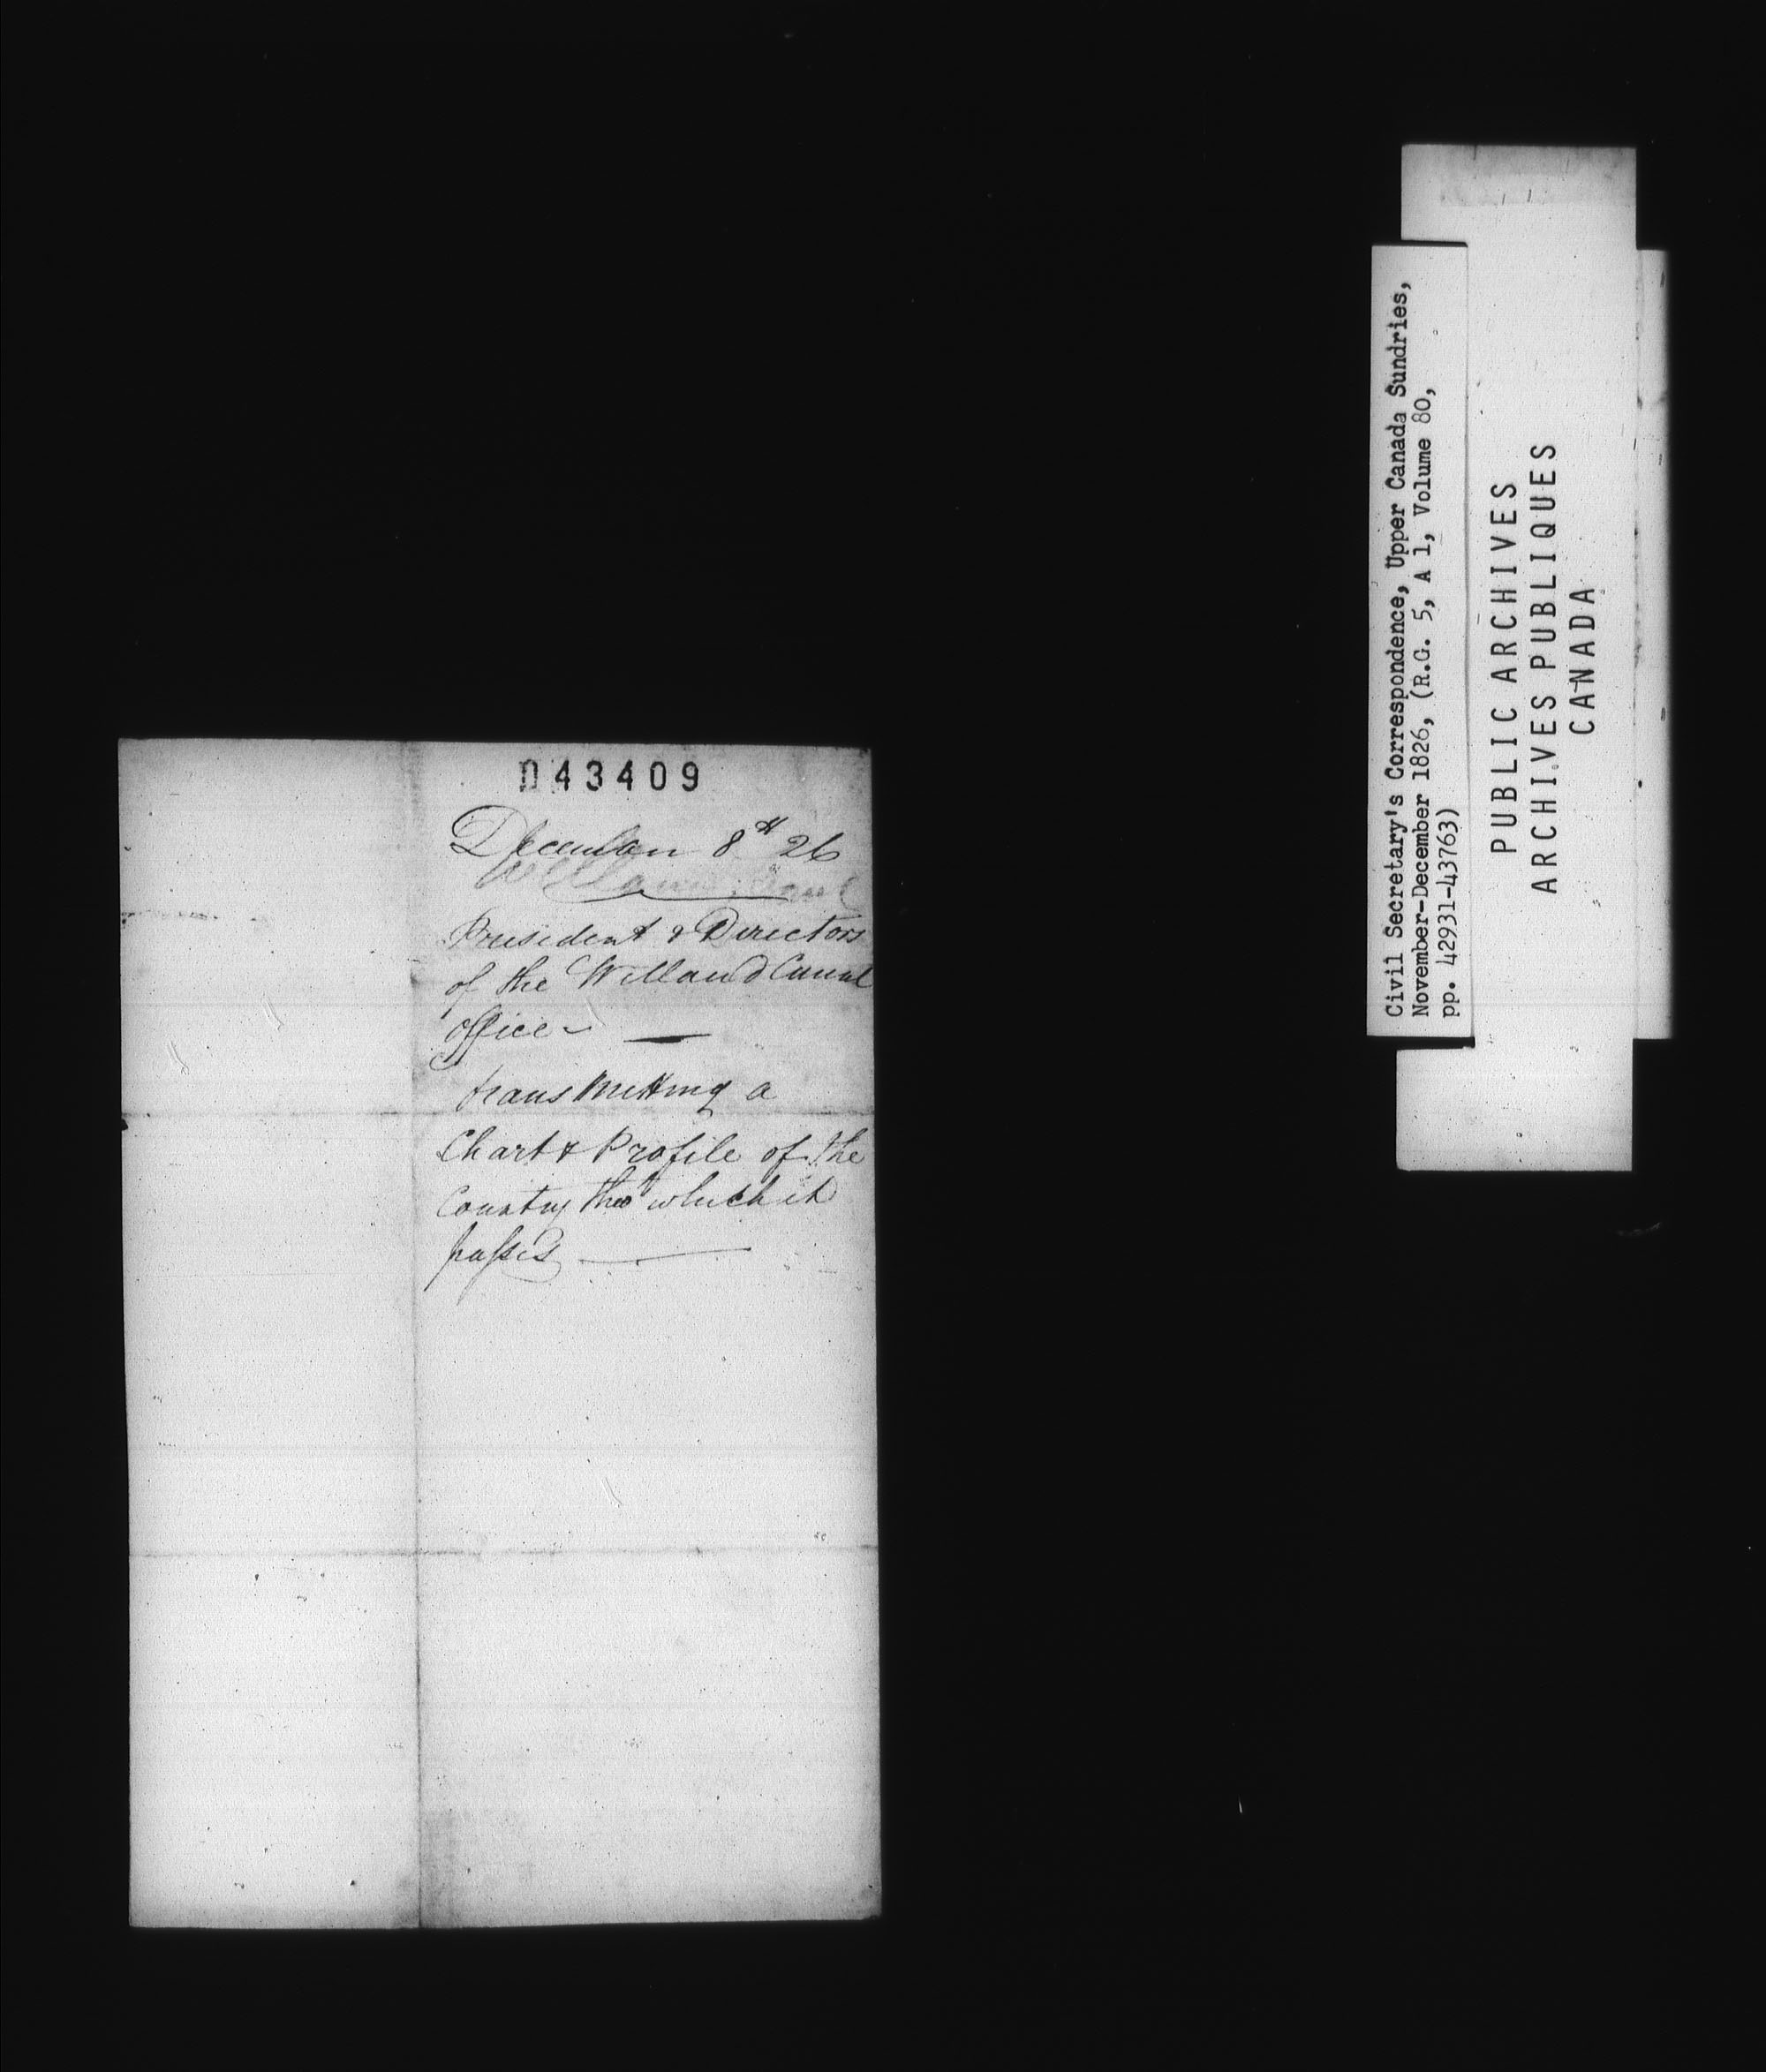 043409
December 8th 26
President & Directors
of the Welland Canal
Office ~ —
transmitting a
Chart & Profile of the
Country thro' which it
passes —
Civil Secretary's Correspondence, Upper Canada Sundries,
November-December 1826, (R.G. 5, A 1, Volume 80,
pp. 42931-43763)
PUBLIC ARCHIVES
ARCHIVES PUBLIQUES
CANADA